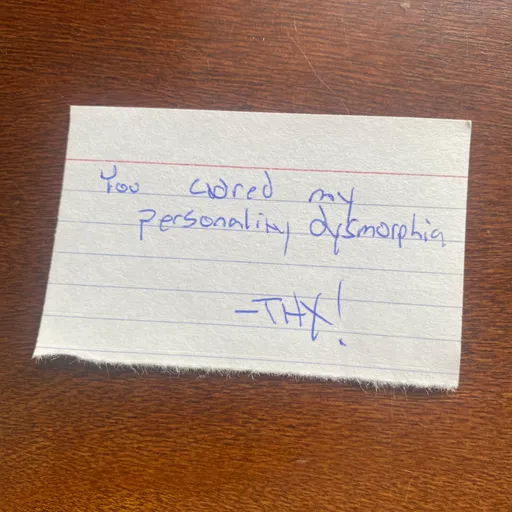 You cured my
personality dysmorphia
-THX!